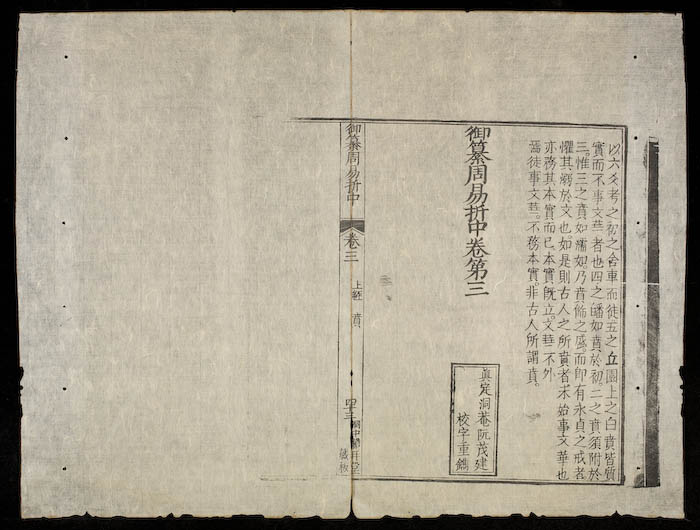 以六爻考之初之舍車而徒五之丘園上之白賁皆質
實而不事文華者也四之皤如賁於初二之賁須附於
三。惟三之賁如濡如乃賁飾之盛。而即有永貞之戒者
懼其溺於文也。如是則古人之所賁者未始事文華也
亦務其本實而已。本實既立。文華不外
焉徒事文華。不務本實。非古人所謂賁。
御纂周易折中卷第三
眞定洞菴阮茂建
校字重鐫
御纂周易折中
卷三
上經 賁
中 拜堂
藏板